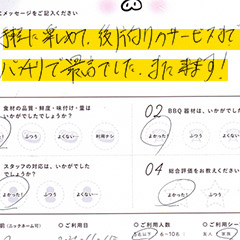 メッセージをご記入ください
手軽に楽しめて、後片付けのサービスまで
バッチリで最高でした。また来ます！
食材の品質・鮮度・味付け・量は
いかがでしたでしょうか？
よかった！ ふつう よくない… 利用ナシ
02 BBQ 器材は、いかがで
よかった！ ふつう
スタッフの対応は、いかがでした
でしょうか？
よかった！ ふつう よくない…
04 総合評価をお教えください
よかった！ ふつう
前（ニックネーム可） ○ご利用日 ○ご利用人数 ○ご利用シー
5名以下 6~10名